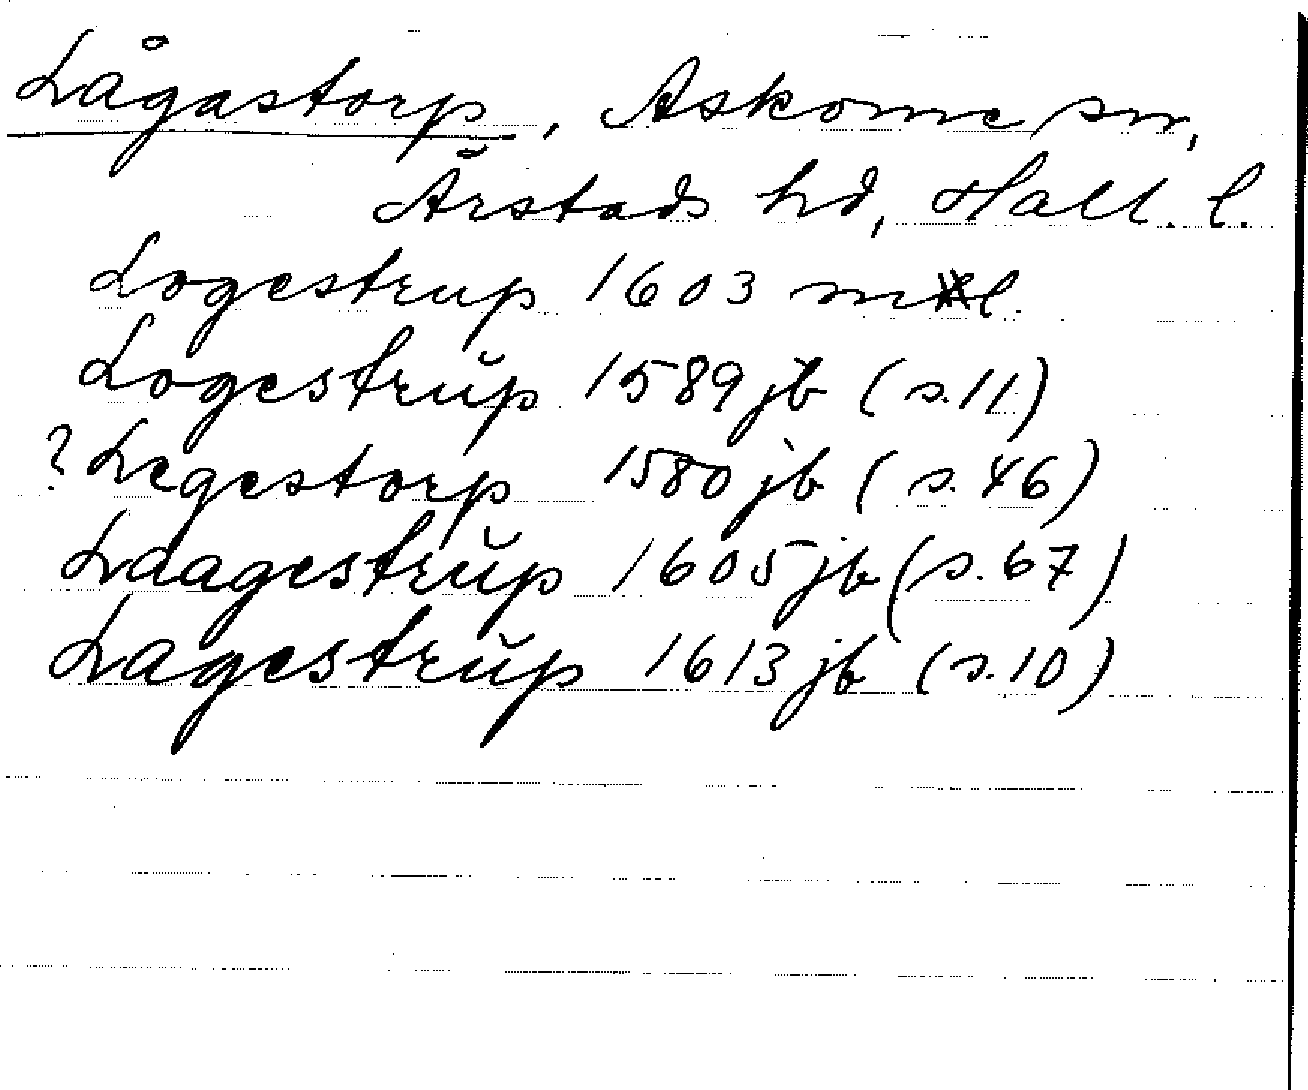 Lågastorp, Askome sn,
Årstads hd, Hall. l.
Logestrup 1603 mtl.
Logestrŭp 1589 jb (s. 11)
? Legestorp 1580 jb (s. 46)
Laagestrŭp 1605 jb (s. 67)
Lagestrŭp 1613 jb (s. 10)